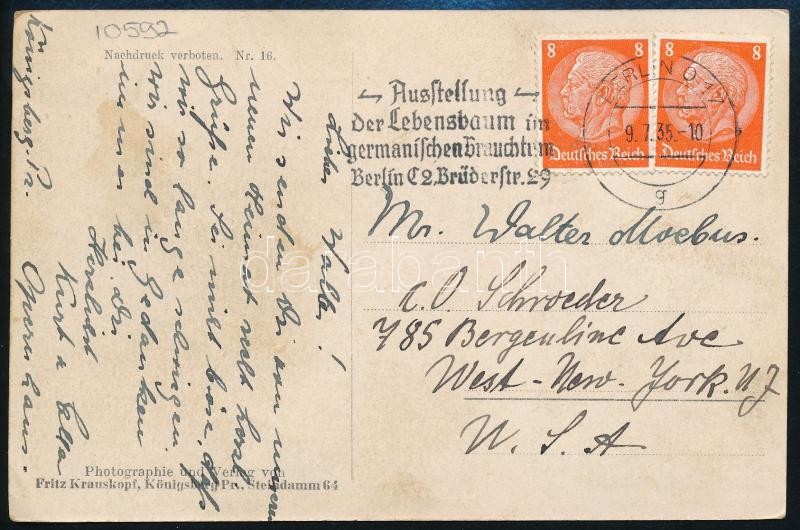 10592
Nachdruck verboten. Nr. 16.
Lieber Walter!
Wir senden Dir von unserer
neuen Heimat recht herzl.
Grüße. Sei nicht böse, daß
wir so lange schweigen
wir sind in Gedanken
immer bei dir
Herzlichst
Kurt u
Königsberg Pr. Opernhaus.
Photographie und Verlag von
Fritz Krauskopf, Königsberg Pr., Steindamm 64
Ausstellung
der Lebensbaum im
germanischen Brauchtum
Berlin C2, Brüderstr. 29
8 8
Deutsches Reich
8 8
Deutsches Reich
BERLIN O 17
9.7.35.-10
g
Mr. Walter Moebus.
c.O Schroeder
785 Bergenline Ave
West-New-York. NJ
U. S. A
darabanth